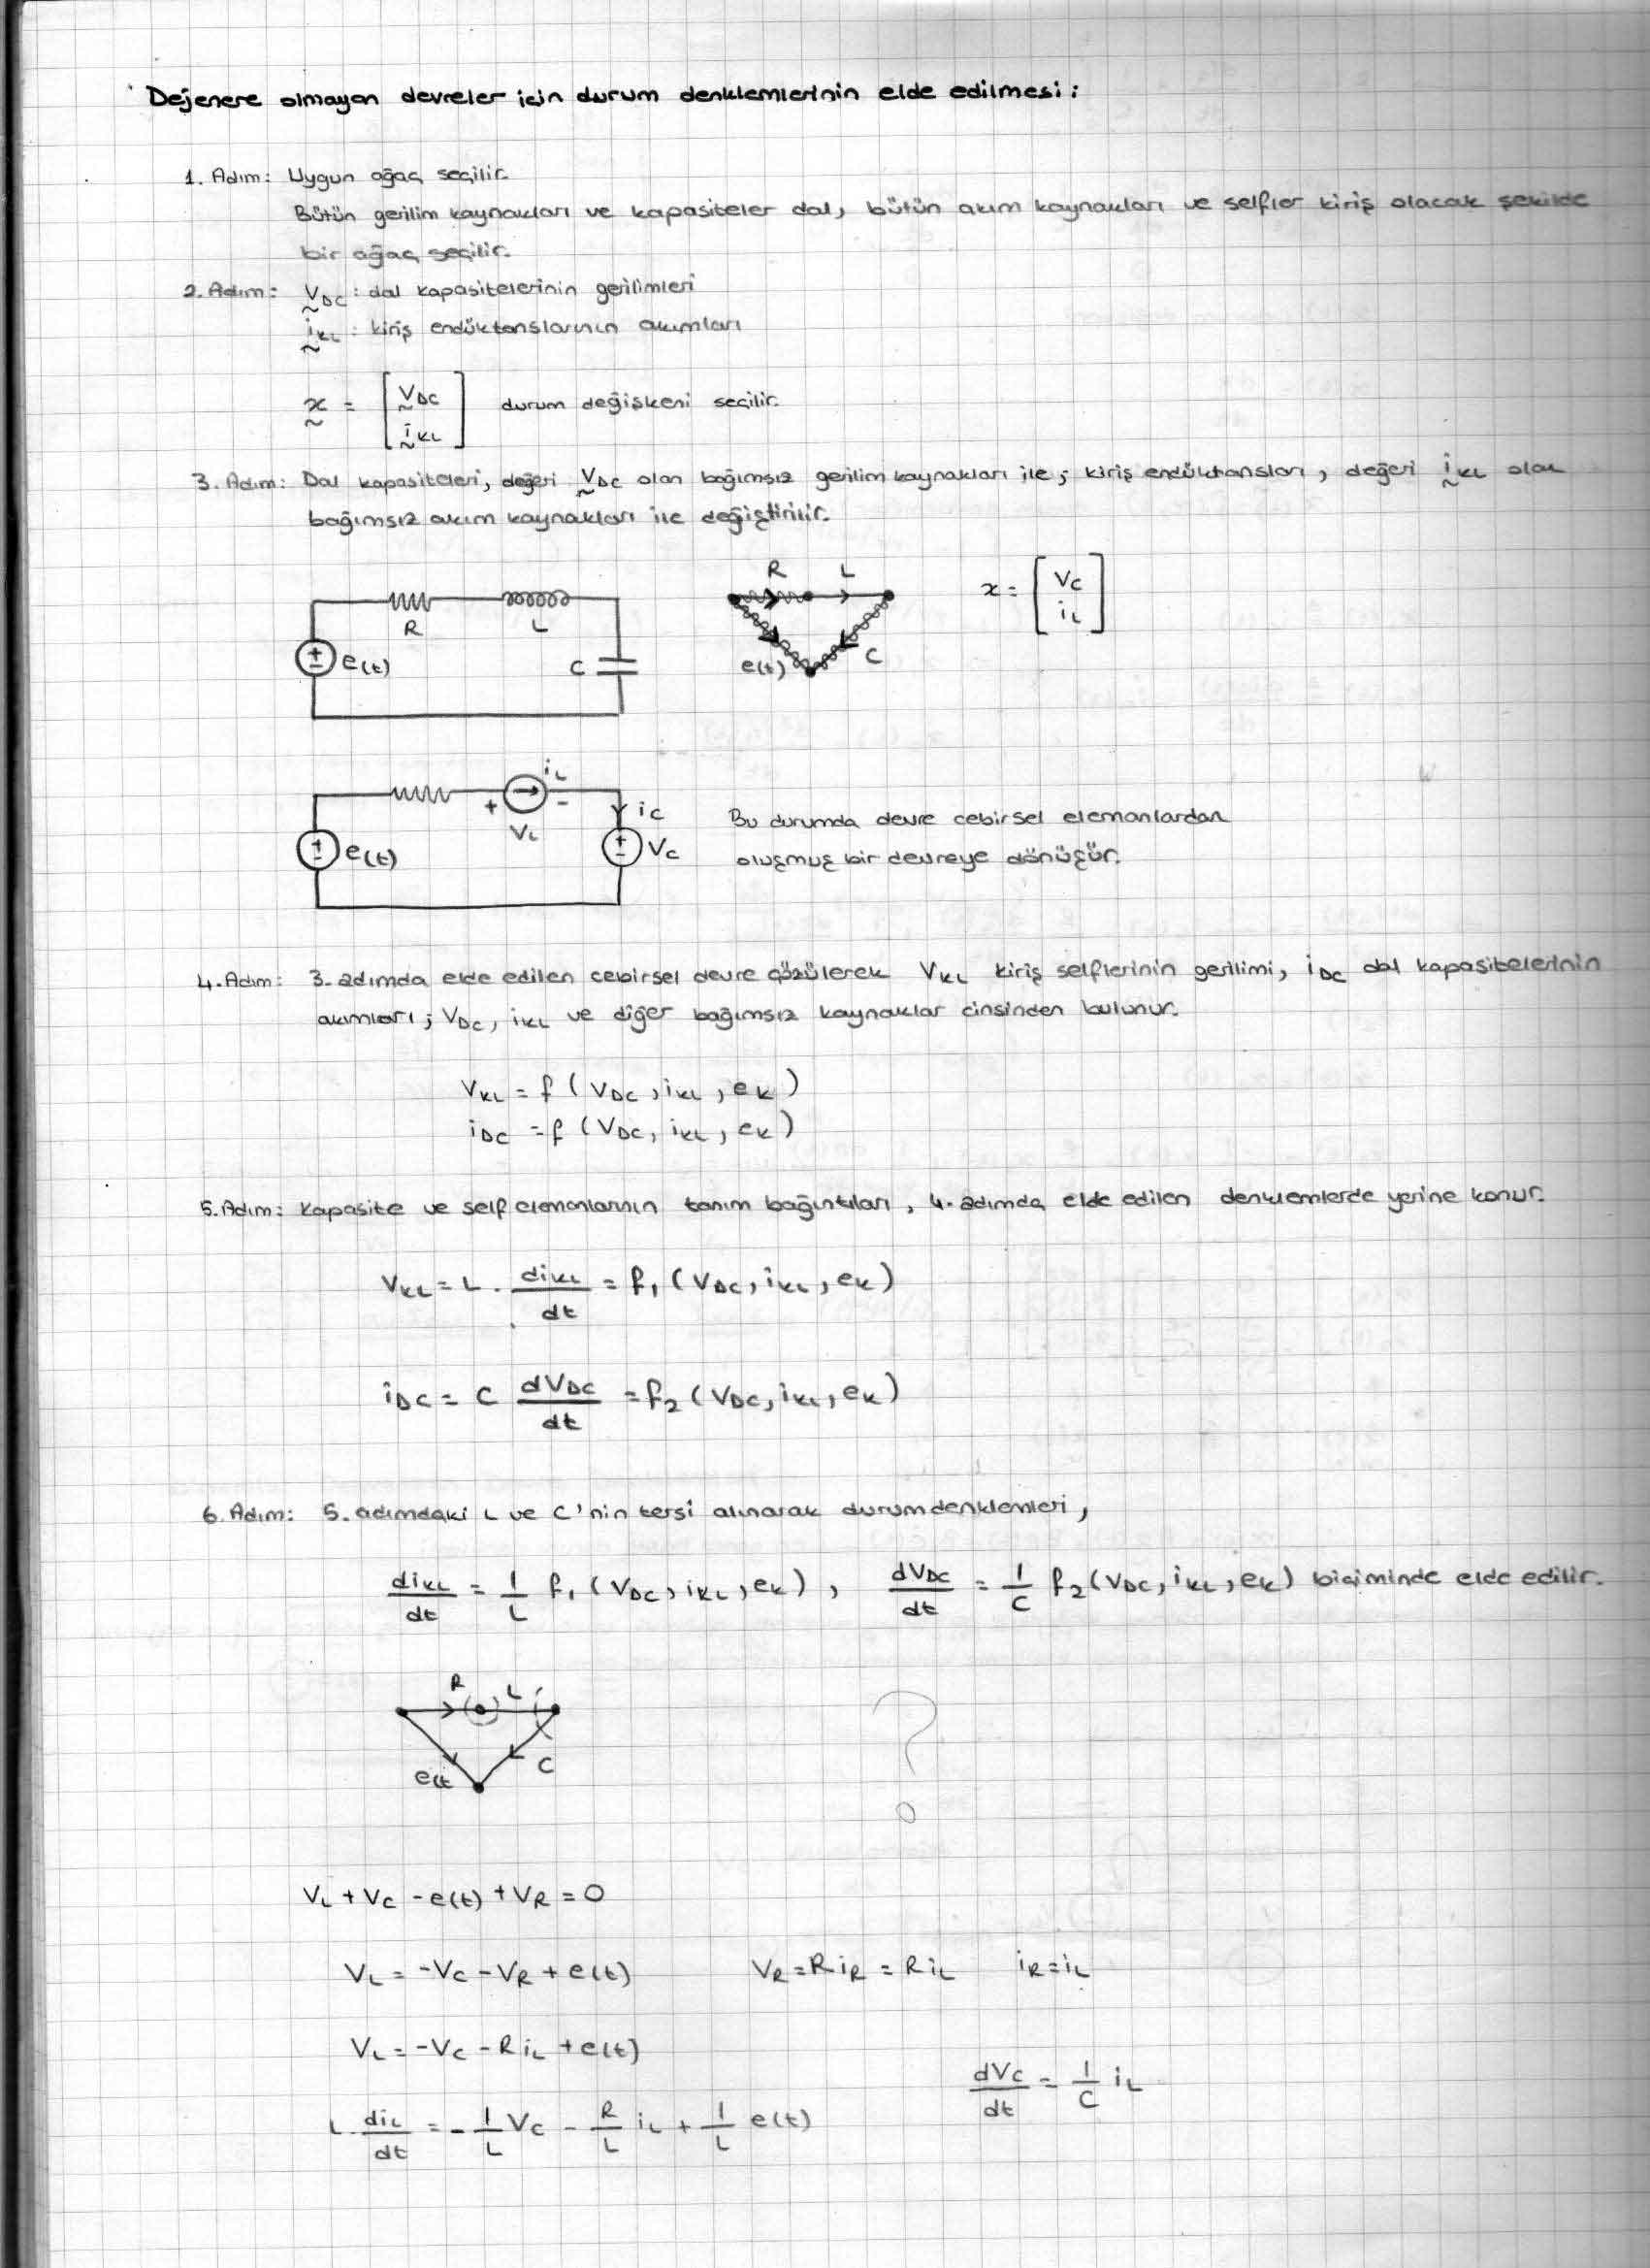 Dejenere olmayan devreler için durum denklemlerinin elde edilmesi:
1. Adım: Uygun ağaç seçilir.
Bütün gerilim kaynakları ve kapasiteler dal, bütün akım kaynakları ve selfler kiriş olacak şekilde
bir ağaç seçilir.
2. Adım: V_DC : dal kapasitelerinin gerilimleri
i_KL : kiriş endüktanslarının akımları
x = [V_DC i_KL] durum değişkeni seçilir.
3. Adım: Dal kapasiteleri, değeri V_DC olan bağımsız gerilim kaynakları ile; kiriş endüktansları, değeri i_KL olan
bağımsız akım kaynakları ile değiştirilir.
R L e(t) C
R L e(t) C
x = [V_C i_L]
i_L + V_L - i_C e(t) V_C
Bu durumda devre cebirsel elemanlardan
oluşmuş bir devreye dönüşür.
4. Adım: 3. adımda elde edilen cebirsel devre çözülerek V_KL kiriş selflerinin gerilimi, i_DC dal kapasitelerinin
akımları; V_DC, i_KL ve diğer bağımsız kaynaklar cinsinden bulunur.
V_KL = f (V_DC, i_KL, e_K)
i_DC = f (V_DC, i_KL, e_K)
5. Adım: Kapasite ve self elemanlarının tanım bağıntıları, 4. adımda elde edilen denklemlerde yerine konur.
V_KL = L . di_KL/dt = f_1 (V_DC, i_KL, e_K)
i_DC = C dV_DC/dt = f_2 (V_DC, i_KL, e_K)
6. Adım: 5. adımdaki L ve C'nin tersi alınarak durum denklemleri,
di_KL/dt = 1/L f_1 (V_DC, i_KL, e_K), dV_DC/dt = 1/C f_2 (V_DC, i_KL, e_K) biçiminde elde edilir.
R L e(t C
?
V_L + V_C - e(t) + V_R = 0
V_L = -V_C - V_R + e(t) V_R = R i_R = R i_L i_R = i_L
V_L = -V_C - R i_L + e(t)
dV_C/dt = 1/C i_L
L . di_L/dt = - 1/L V_C - R/L i_L + 1/L e(t)